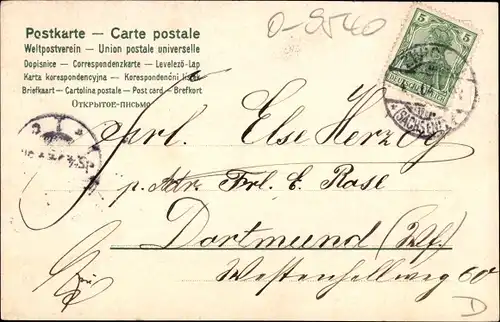 O-9540
Postkarte — Carte postale
Weltpostverein — Union postale universelle
Dopisnice — Correspondenzkarte — Levelező-Lap
Karta korespondencyjna — Korespondenční lístek
Briefkaart — Cartolina postale — Post card — Brefkort
Открытое-письмо
5 5
DEUTSCHES
(SACHSEN)
Frl. Else Herzog
p. Adr. Frl. E. Rose
Dortmund (Wf.)
Westenhellweg 60
D